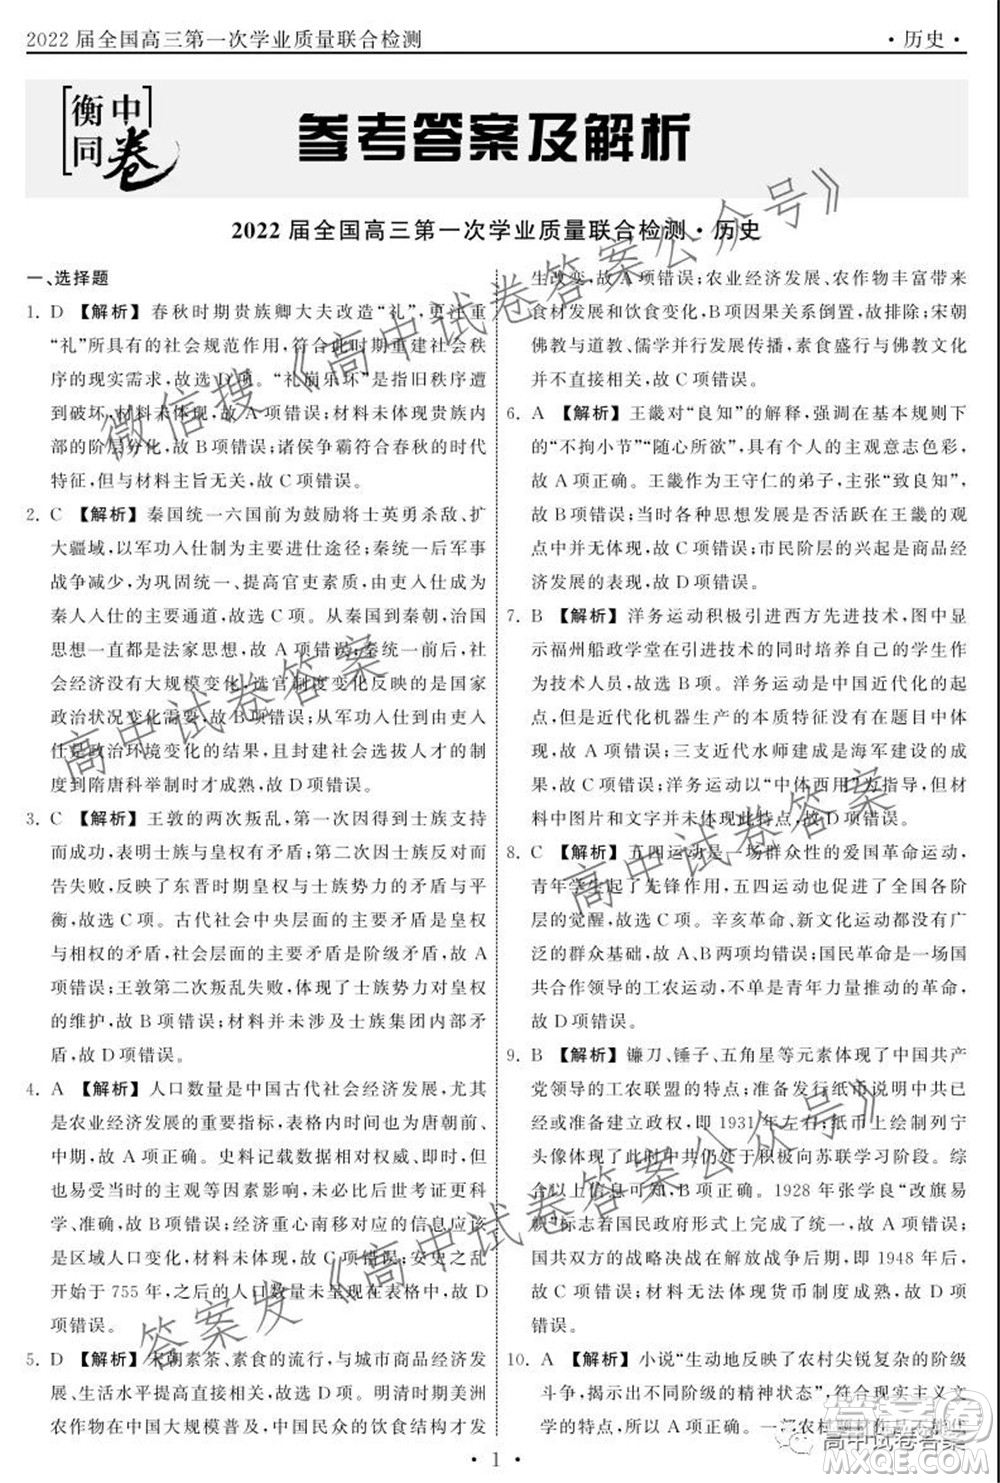 2022 届全国高三第一次学业质量联合检测
·历史·
衡中
同卷
参考答案及解析
2022 届全国高三第一次学业质量联合检测·历史
一、选择题
1. D 【解析】春秋时期贵族卿大夫改造“礼”，更注重
“礼”所具有的社会规范作用，符合此时期重建社会秩
序的现实需求，故选 D 项。“礼崩乐坏”是指旧秩序遭
到破坏，材料未体现，故 A 项错误；材料未体现贵族内
部的阶层分化，故 B 项错误；诸侯争霸符合春秋的时代
特征，但与材料主旨无关，故 C 项错误。
2. C 【解析】秦国统一六国前为鼓励将士英勇杀敌、扩
大疆域，以军功入仕制为主要进仕途径；秦统一后军事
战争减少，为巩固统一、提高官吏素质，由吏入仕成为
秦人入仕的主要通道，故选 C 项。从秦国到秦朝，治国
思想一直都是法家思想，故 A 项错误；秦统一前后，社
会经济没有大规模变化，选官制度变化反映的是国家
政治状况变化需要，故 B 项错误；从军功入仕到由吏入
仕是政治环境变化的结果，且封建社会选拔人才的制
度到隋唐科举制时才成熟，故 D 项错误。
3. C 【解析】王敦的两次叛乱，第一次因得到士族支持
而成功，表明士族与皇权有矛盾；第二次因士族反对而
告失败，反映了东晋时期皇权与士族势力的矛盾与平
衡，故选 C 项。古代社会中央层面的主要矛盾是皇权
与相权的矛盾，社会层面的主要矛盾是阶级矛盾，故 A
项错误；王敦第二次叛乱失败，体现了士族势力对皇权
的维护，故 B 项错误；材料并未涉及士族集团内部矛
盾，故 D 项错误。
4. A 【解析】人口数量是中国古代社会经济发展，尤其
是农业经济发展的重要指标，表格内时间是唐朝前、
中期，故 A 项正确。史料记载相对权威、即时，但也会
受到当时的主观等因素影响，未必比后世考证更科
学、准确，故 B 项错误；经济重心南移对应的信息应该
是区域人口变化，材料无体现，故 C 项错误；安史之乱
开始于 755 年，这之后的人口数量未呈现在表格中，故 D
项错误。
5. D 【解析】宋朝素茶、素食的流行，与城市商品经济发
展、生活水平提高直接相关，故选 D 项。明清时期美洲
农作物在中国大规模普及，中国民众的饮食结构才发
生改变，故 A 项错误；农业经济发展、农作物丰富带来
食材发展和饮食变化，B 项因果关系倒置，故排除；宋朝
佛教与道教、儒学并行发展传播，素食盛行与佛教文化
并不直接相关，故 C 项错误。
6. A 【解析】王畿对“良知”的解释，强调在基本规则下
的“不拘小节”“随心所欲”，具有个人的主观意志色彩，
故 A 项正确。王畿作为王守仁的弟子，主张“致良知”，
故 B 项错误；当时各种思想发展是否活跃在王畿的观
点中并无体现，故 C 项错误；市民阶层的兴起是商品经
济发展的表现，故 D 项错误。
7. B 【解析】洋务运动积极引进西方先进技术，图中显
示福州船政学堂在引进技术的同时培养自己的学生作
为技术人员，故选 B 项。洋务运动是中国近代化的起
点，但是近代化机器生产的本质特征没有在题目中体
现，故 A 项错误；三支近代水师建成是海军建设的成
果，故 C 项错误；洋务运动以“中体西用”为指导，但材
料中图片和文字并未体现此特点，故 D 项错误。
8. C 【解析】五四运动是一场群众性的爱国革命运动，
青年学生起了先锋作用，五四运动促进了全国各阶
层的觉醒，故选 C 项。辛亥革命、新文化运动都没有广
泛的群众基础，故 A、B 两项均错误；国民革命是一场国
共合作领导的工农运动，不单是青年运动的革命，故
D 项错误。
9. B 【解析】镰刀、锤子、五角星等元素体现了中国共产
党领导的工农联盟的特点；准备发行纸币说明中共已
经或准备建立政权，即 1931 年左右；纸币上绘制列宁
头像体现此时中共仍处于积极向苏联学习阶段。综
合以上信息可知，B 项正确。1928 年张学良“改旗易
帜”标志着国民政府形式上完成统一，故 A 项错误；
国共双方的战略决战在解放战争后期，即 1948 年后，
故 C 项错误；材料无法体现货币制度成熟，故 D 项
错误。
10. A 【解析】小说“生动地反映了农村尖锐复杂的阶级
斗争，刻画了不同阶级的精神状态”，体现现实主义文
学的特点，所以 A 项正确。
· 1 ·
微信搜《高中试卷答案公众号》
高中试卷答案
高中试卷答案
答案发《高中试卷答案公众号》
高中试卷答案